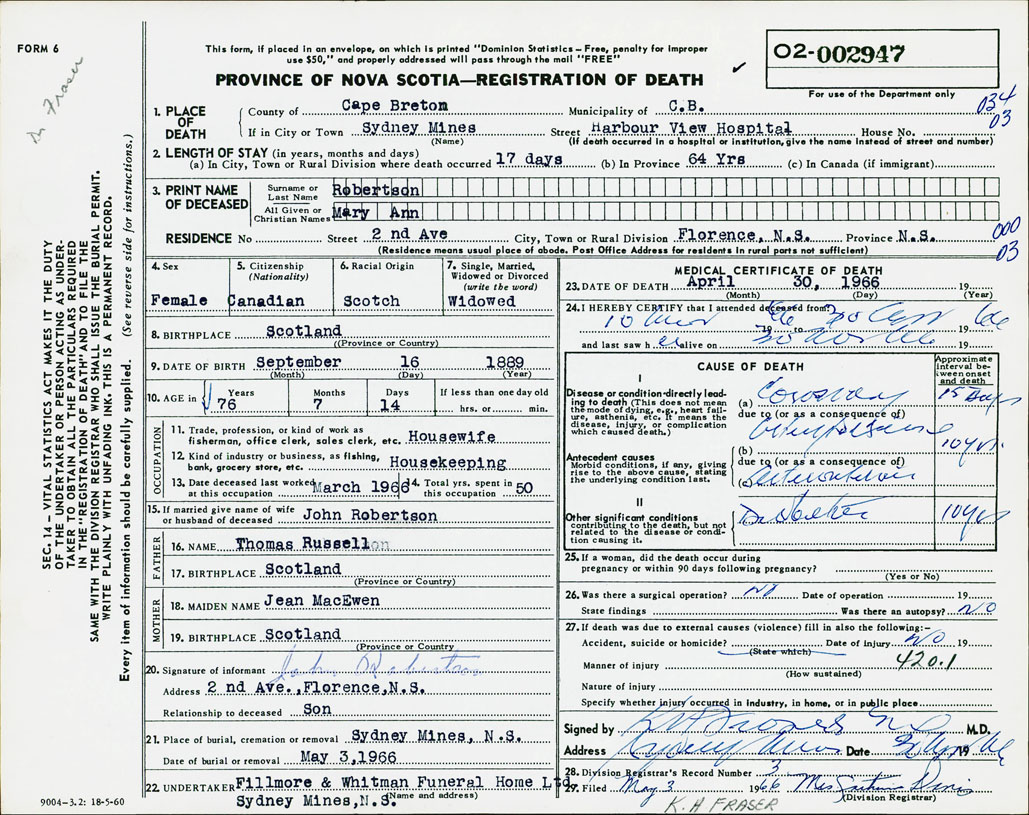 FORM 6
This form, if placed in an envelope, on which is printed "Dominion Statistics – Free, penalty for improper
use $50," and properly addressed will pass through the mail "FREE"
PROVINCE OF NOVA SCOTIA—REGISTRATION OF DEATH
02-002947
For use of the Department only
Dr Fraser
034
03
1. PLACE OF DEATH
County of Cape Breton Municipality of C.B.
If in City or Town Sydney Mines Street Harbour View Hospital House No.
(Name) (If death occurred in a hospital or institution, give the name instead of street and number)
2. LENGTH OF STAY (in years, months and days)
(a) In City, Town or Rural Division where death occurred 17 days (b) In Province 64 Yrs (c) In Canada (if immigrant)
3. PRINT NAME OF DECEASED
Surname or Last Name Robertson
All Given or Christian Names Mary Ann
000
03
RESIDENCE No Street 2 nd Ave City, Town or Rural Division Florence, N.S. Province N.S.
(Residence means usual place of abode. Post Office Address for residents in rural parts not sufficient)
SEC. 14 – VITAL STATISTICS ACT MAKES IT THE DUTY
OF THE UNDERTAKER OR PERSON ACTING AS UNDER-
TAKER TO OBTAIN ALL THE PARTICULARS REQUIRED
IN THE "REGISTRATION OF DEATH" AND TO FILE THE
SAME WITH THE DIVISION REGISTRAR WHO SHALL ISSUE THE BURIAL PERMIT.
WRITE PLAINLY WITH UNFADING INK. THIS IS A PERMANENT RECORD.
Every item of information should be carefully supplied. (See reverse side for instructions.)
4. Sex Female
5. Citizenship (Nationality) Canadian
6. Racial Origin Scotch
7. Single, Married, Widowed or Divorced (write the word) Widowed
8. BIRTHPLACE Scotland
(Province or Country)
9. DATE OF BIRTH September 16 1889
(Month) (Day) (Year)
10. AGE in Years 76 Months 7 Days 14 If less than one day old hrs. or min.
OCCUPATION
11. Trade, profession, or kind of work as
fisherman, office clerk, sales clerk, etc. Housewife
12. Kind of industry or business, as fishing,
bank, grocery store, etc. Housekeeping
13. Date deceased last worked at this occupation March 1966 14. Total yrs. spent in this occupation 50
15. If married give name of wife or husband of deceased John Robertson
FATHER
16. NAME Thomas Russell
17. BIRTHPLACE Scotland
(Province or Country)
MOTHER
18. MAIDEN NAME Jean MacEwen
19. BIRTHPLACE Scotland
(Province or Country)
20. Signature of informant John Robertson
Address 2 nd Ave., Florence, N.S.
Relationship to deceased Son
21. Place of burial, cremation or removal Sydney Mines, N.S.
Date of burial or removal May 3, 1966
22. UNDERTAKER Fillmore & Whitman Funeral Home Ltd.
Sydney Mines, N.S. (Name and address)
9004–3.2: 18-5-60
MEDICAL CERTIFICATE OF DEATH
23. DATE OF DEATH April 30, 1966 19
(Month) (Day) (Year)
24. I HEREBY CERTIFY that I attended deceased from:
19 to 19
and last saw h er alive on 19
CAUSE OF DEATH
Approximate interval between onset and death
I
Disease or condition directly lead-
ing to death (This does not mean
the mode of dying, e.g., heart fail-
ure, asthenia, etc. It means the
disease, injury, or complication
which caused death.)
(a) Coronary 15 days
due to (or as a consequence of)
Antecedent causes
Morbid conditions, if any, giving
rise to the above cause, stating
the underlying condition last.
(b) 10 yrs.
due to (or as a consequence of)
(c)
II
Other significant conditions
contributing to the death, but not
related to the disease or condi-
tion causing it.
Diabetes 10 yrs
25. If a woman, did the death occur during
pregnancy or within 90 days following pregnancy?
(Yes or No)
26. Was there a surgical operation? NO Date of operation 19
State findings Was there an autopsy? NO
27. If death was due to external causes (violence) fill in also the following:–
Accident, suicide or homicide? Date of injury NO 19
(State which)
Manner of injury 420.1
(How sustained)
Nature of injury
Specify whether injury occurred in industry, in home, or in public place
Signed by K H Fraser M.D.
Address Sydney Mines Date 30 Apr 19 66
28. Division Registrar's Record Number 3
29. Filed May 3 1966 Mrs
(Division Registrar)
K. H FRASER